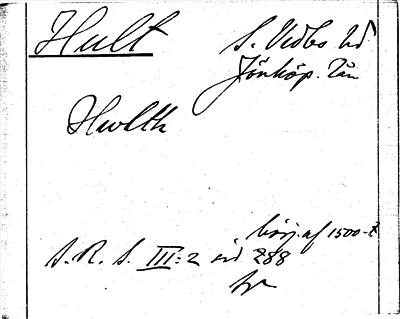 Hult
S. Vedbo hd
Jönköp. län
Hwlth
börj. af 1500-t
S. R. S. III:2 sid 288